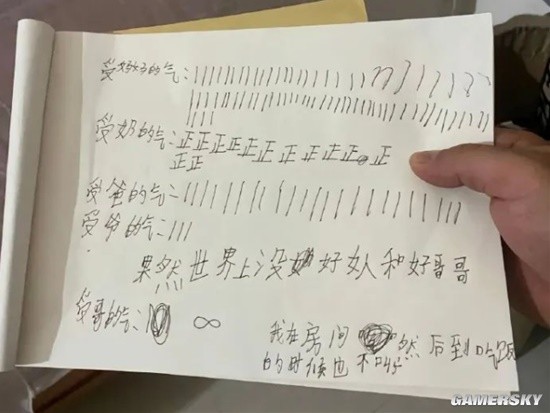 受妈妈的气:
受奶的气:正正正正正正正正正正正
正正
受爸的气:
受爷的气:
果然世界上没好女人和好哥哥
受哥的气: ∞
我在房间 然后到吃饭
的时候也不叫我
GAMERSKY